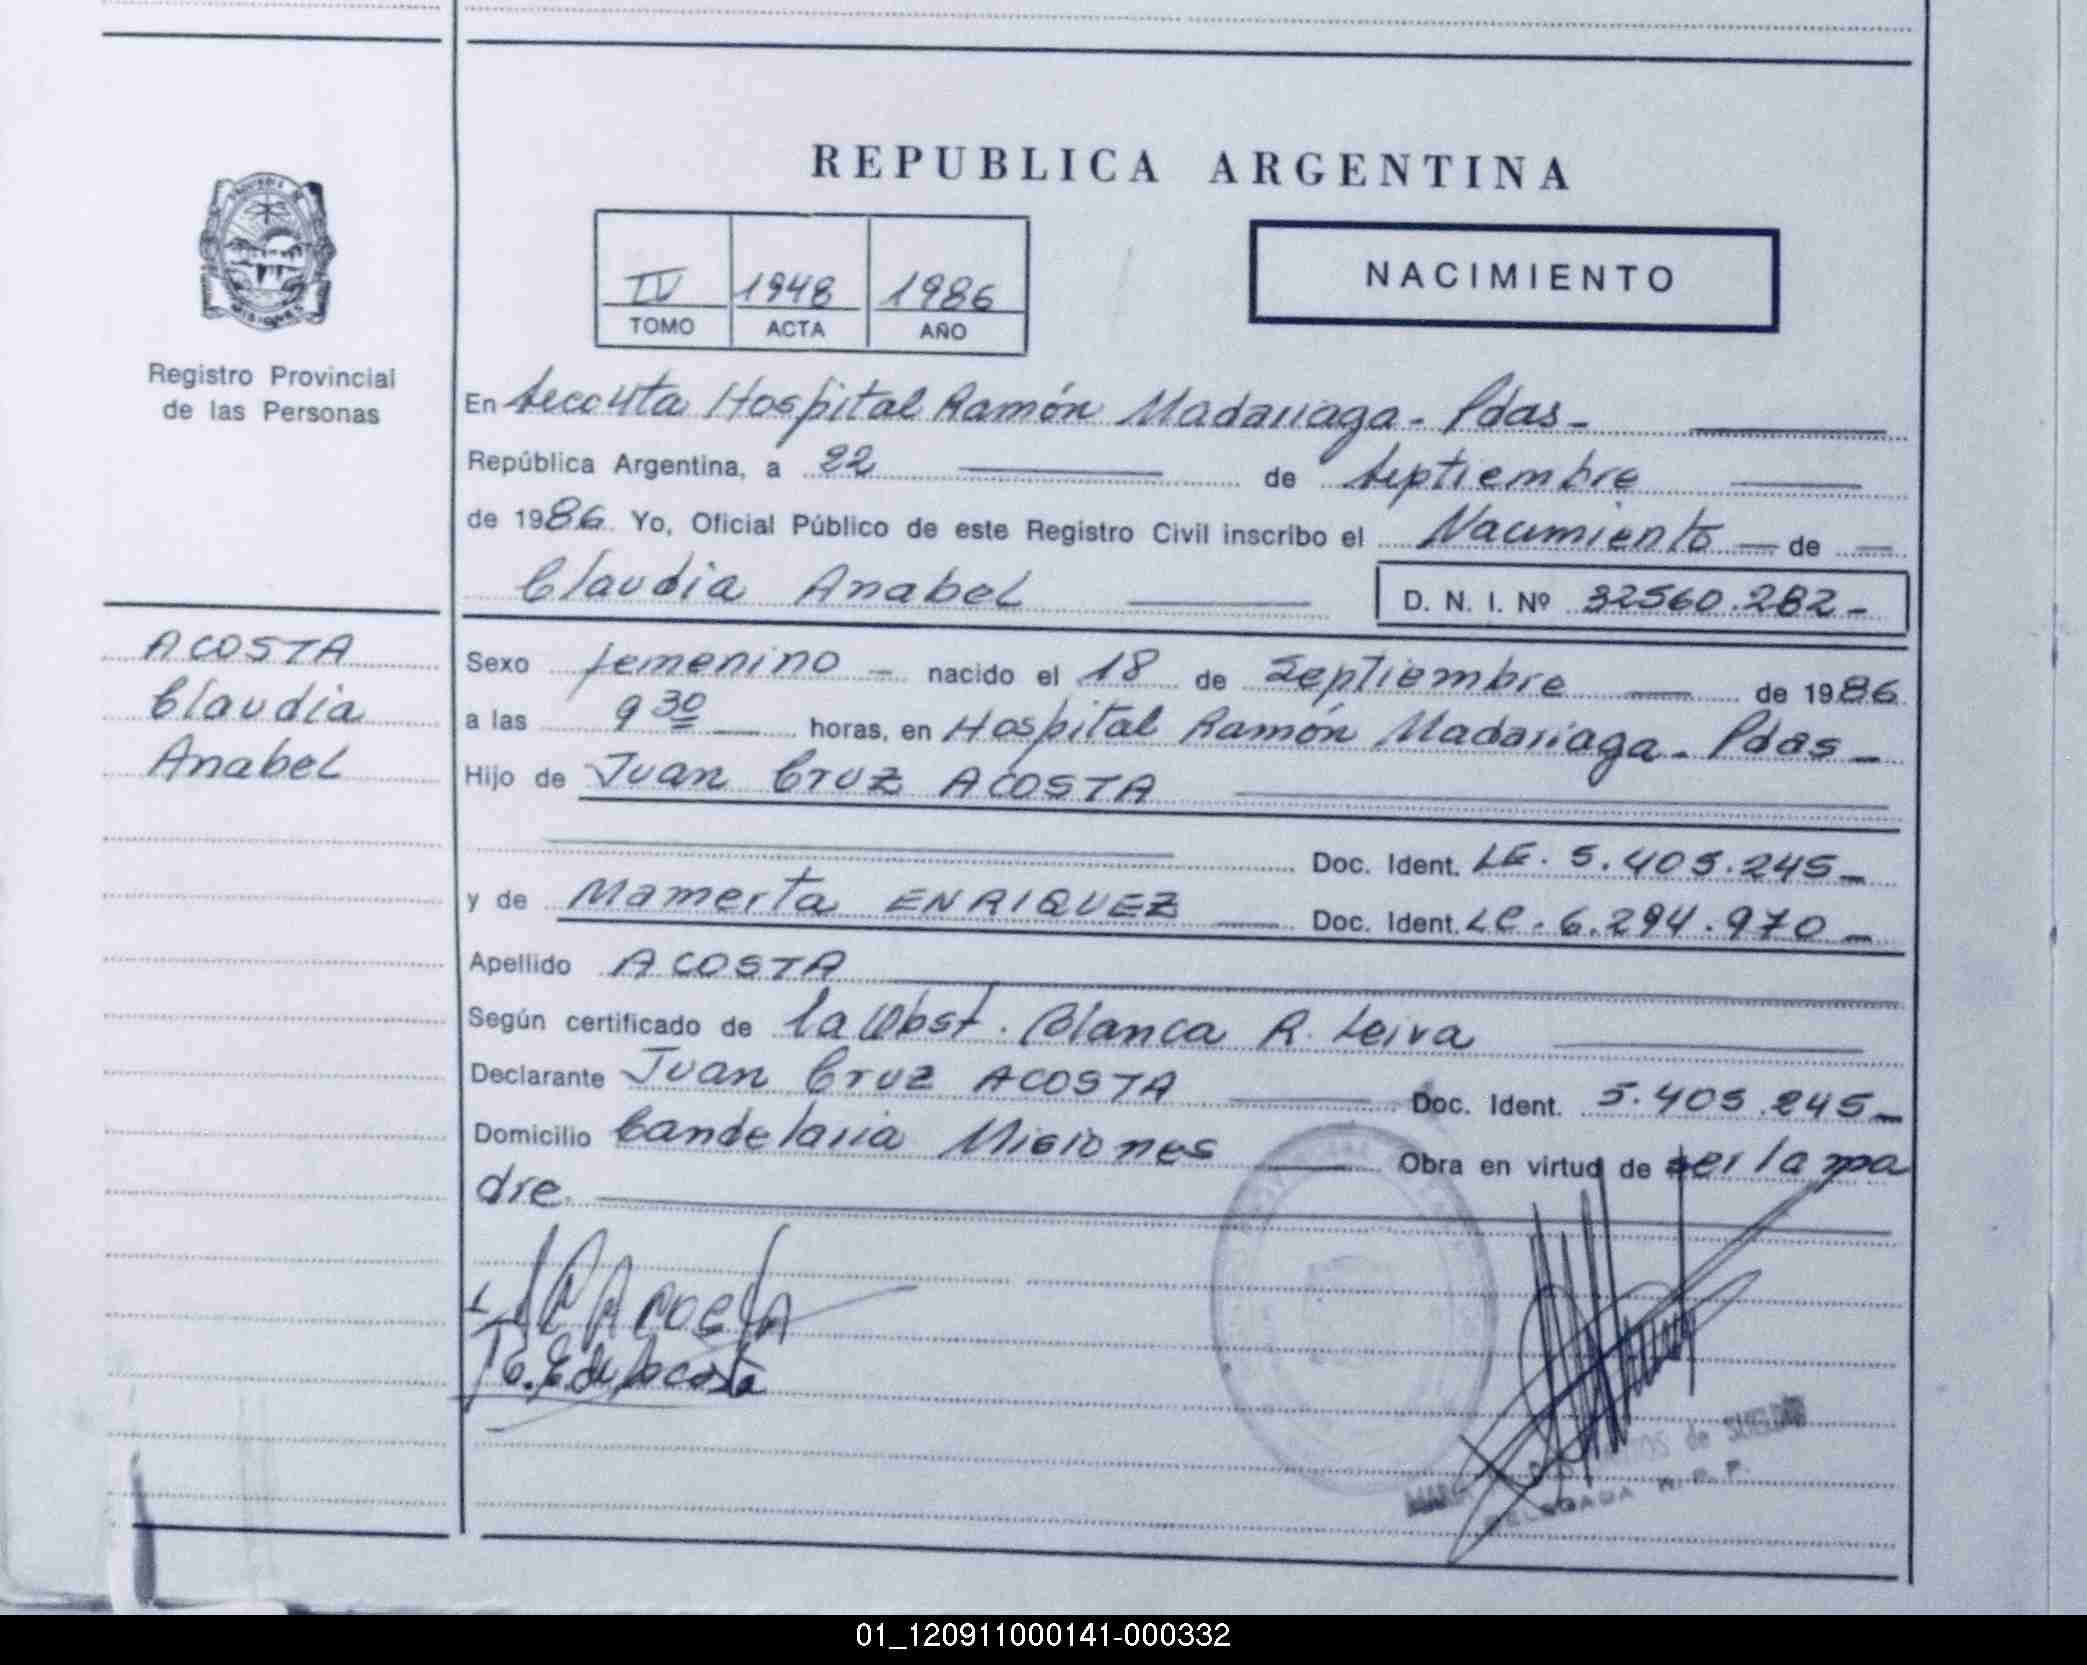 REPUBLICA ARGENTINA
IV 1948 1986
TOMO ACTA AÑO
NACIMIENTO
MISIONES
Registro Provincial
de las Personas
ACOSTA
Claudia
Anabel
En Seccuta Hospital Ramón Madariaga - Pdas -
República Argentina, a 22 de Septiembre
de 1986 Yo, Oficial Público de este Registro Civil inscribo el Nacimiento de
Claudia Anabel D. N. I. Nº 32560.282-
Sexo femenino - nacido el 18 de Septiembre de 1986
a las 9 30 horas, en Hospital Ramón Madariaga - Pdas -
Hijo de Juan Cruz ACOSTA
Doc. Ident. LE. 5.405.245-
y de Mamerta ENRIQUEZ Doc. Ident. LC. 6.294.970-
Apellido ACOSTA
Según certificado de la Obst. Blanca R. Leiva
Declarante Juan Cruz ACOSTA Doc. Ident. 5.405.245-
Domicilio Candelaria Misiones Obra en virtud de ser la pa
dre.
J C ACOSTA
de Acosta
de
DELEGADA R. P. P.
01_120911000141-000332